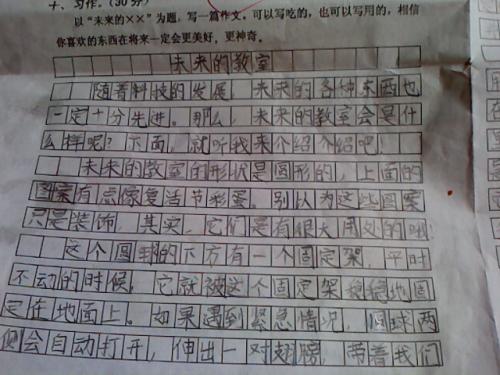 十、习作。(30分)
以“未来的××”为题,写一篇作文。可以写吃的,也可以写用的,相信
你喜欢的东西在将来一定会更美好,更神奇。
未来的教室
随着科技的发展,未来的各种东西也
一定十分先进。那么,未来的教室会是什
么样呢?下面,就听我来介绍介绍吧!
未来的教室的形状是圆形的,上面的
图案有点像复活节彩蛋,别以为这些图案
只是装饰,其实,它们是有很大用处的哦!
这个圆球的下方有一个固定架,平时
不动的时候,它就被这个固定架稳稳地固
定在地面上。如果遇到紧急情况,圆球两
侧会自动打开,伸出一对翅膀,带着我们